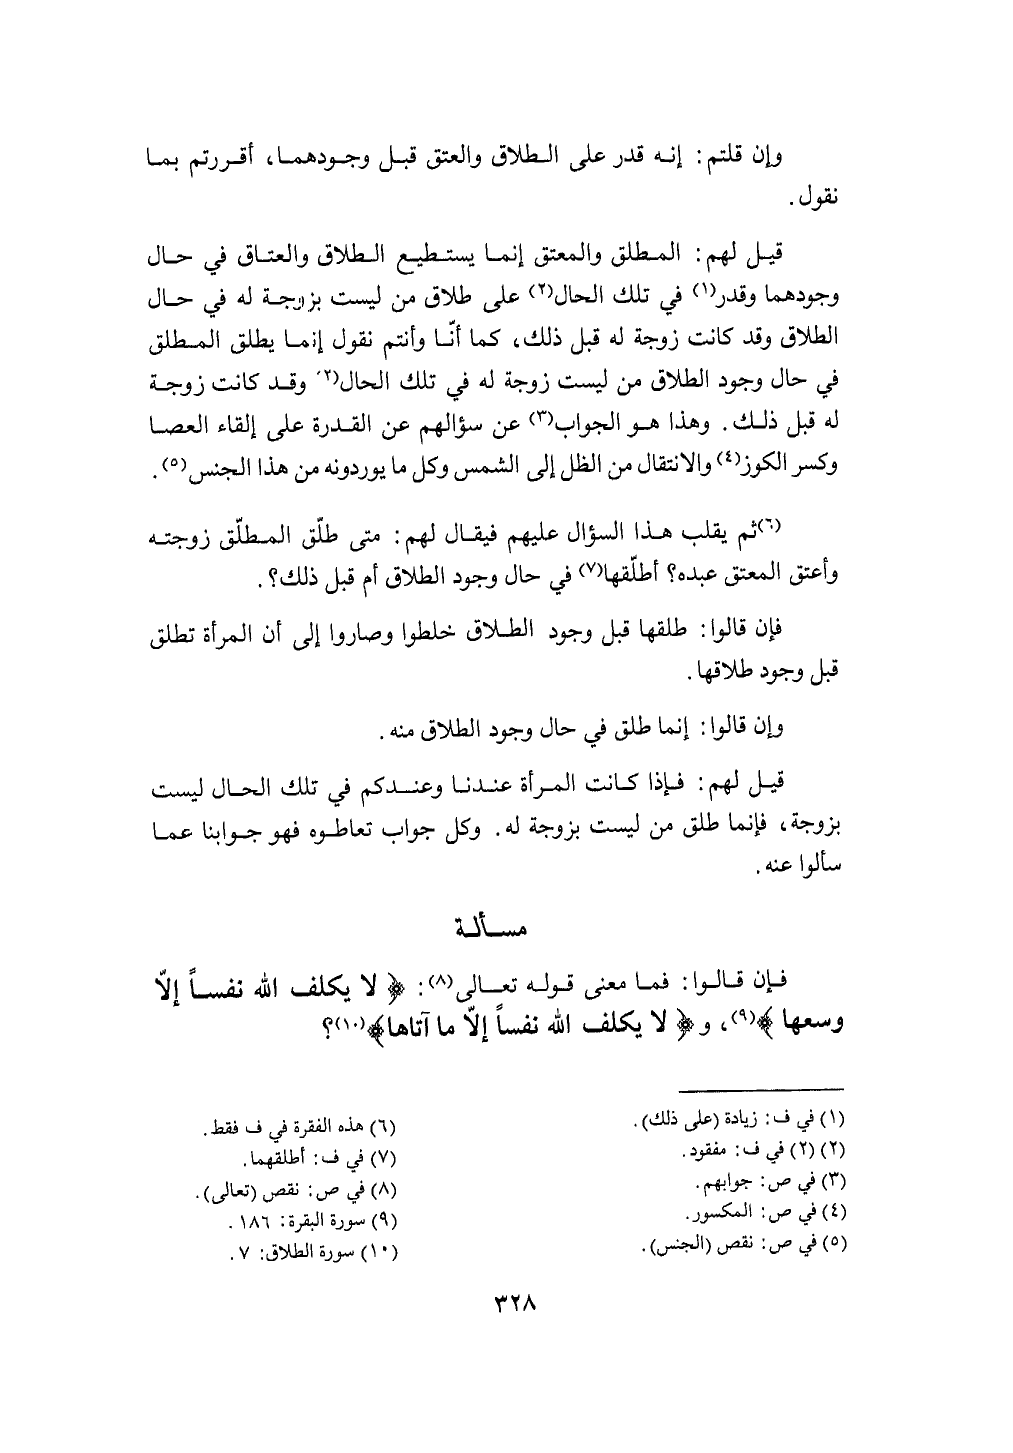 وإن قلتم: إنه قدر على الطلاق والعتق قبل وجودهما، أقررتم بما
نقول.
قيل لهم: المطلق والمعتق إنما يستطيع الطلاق والعتاق في حال
وجودهما وقدر(١) في تلك الحال(٢) على طلاق من ليست بزوجة له في حال
الطلاق وقد كانت زوجة له قبل ذلك، كما أنّا وأنتم نقول إنما يطلق المطلق
في حال وجود الطلاق من ليست زوجة له في تلك الحال(٢) وقد كانت زوجة
له قبل ذلك. وهذا هو الجواب(٣) عن سؤالهم عن القدرة على إلقاء العصا
وكسر الكوز(٤) والانتقال من الظل إلى الشمس وكل ما يوردونه من هذا الجنس(٥).
(٦)ثم يقلب هذا السؤال عليهم فيقال لهم: متى طلّق المطلّق زوجته
وأعتق المعتق عبده؟ أطلّقها(٧) في حال وجود الطلاق أم قبل ذلك؟.
فإن قالوا: طلقها قبل وجود الطلاق خلطوا وصاروا إلى أن المرأة تطلق
قبل وجود طلاقها.
وإن قالوا: إنما طلق في حال وجود الطلاق منه.
قيل لهم: فإذا كانت المرأة عندنا وعندكم في تلك الحال ليست
بزوجة، فإنما طلق من ليست بزوجة له. وكل جواب تعاطوه فهو جوابنا عما
سألوا عنه.
مسألة
فإن قالوا: فما معنى قوله تعالى(٨): ﴿ لا يكلف الله نفساً إلاّ
وسعها ﴾(٩)، و﴿ لا يكلف الله نفساً إلاّ ما آتاها﴾(١٠)؟
(١) في ف: زيادة (على ذلك).
(٢) (٢) في ف: مفقود.
(٣) في ص: جوابهم.
(٤) في ص: المكسور.
(٥) في ص: نقص (الجنس).
(٦) هذه الفقرة في ف فقط.
(٧) في ف: أطلقهما.
(٨) في ص: نقص (تعالى).
(٩) سورة البقرة: ١٨٦.
(١٠) سورة الطلاق: ٧.
٣٢٨